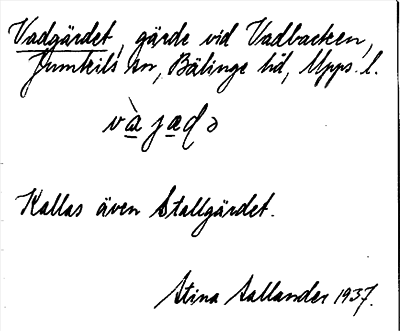 Vadgärdet, gärde vid Vadbacken,
Jumkils sn, Bälinge hd, Upps. l.
và jadə
Kallas även Stallgärdet.
Stina Sallander 1937.